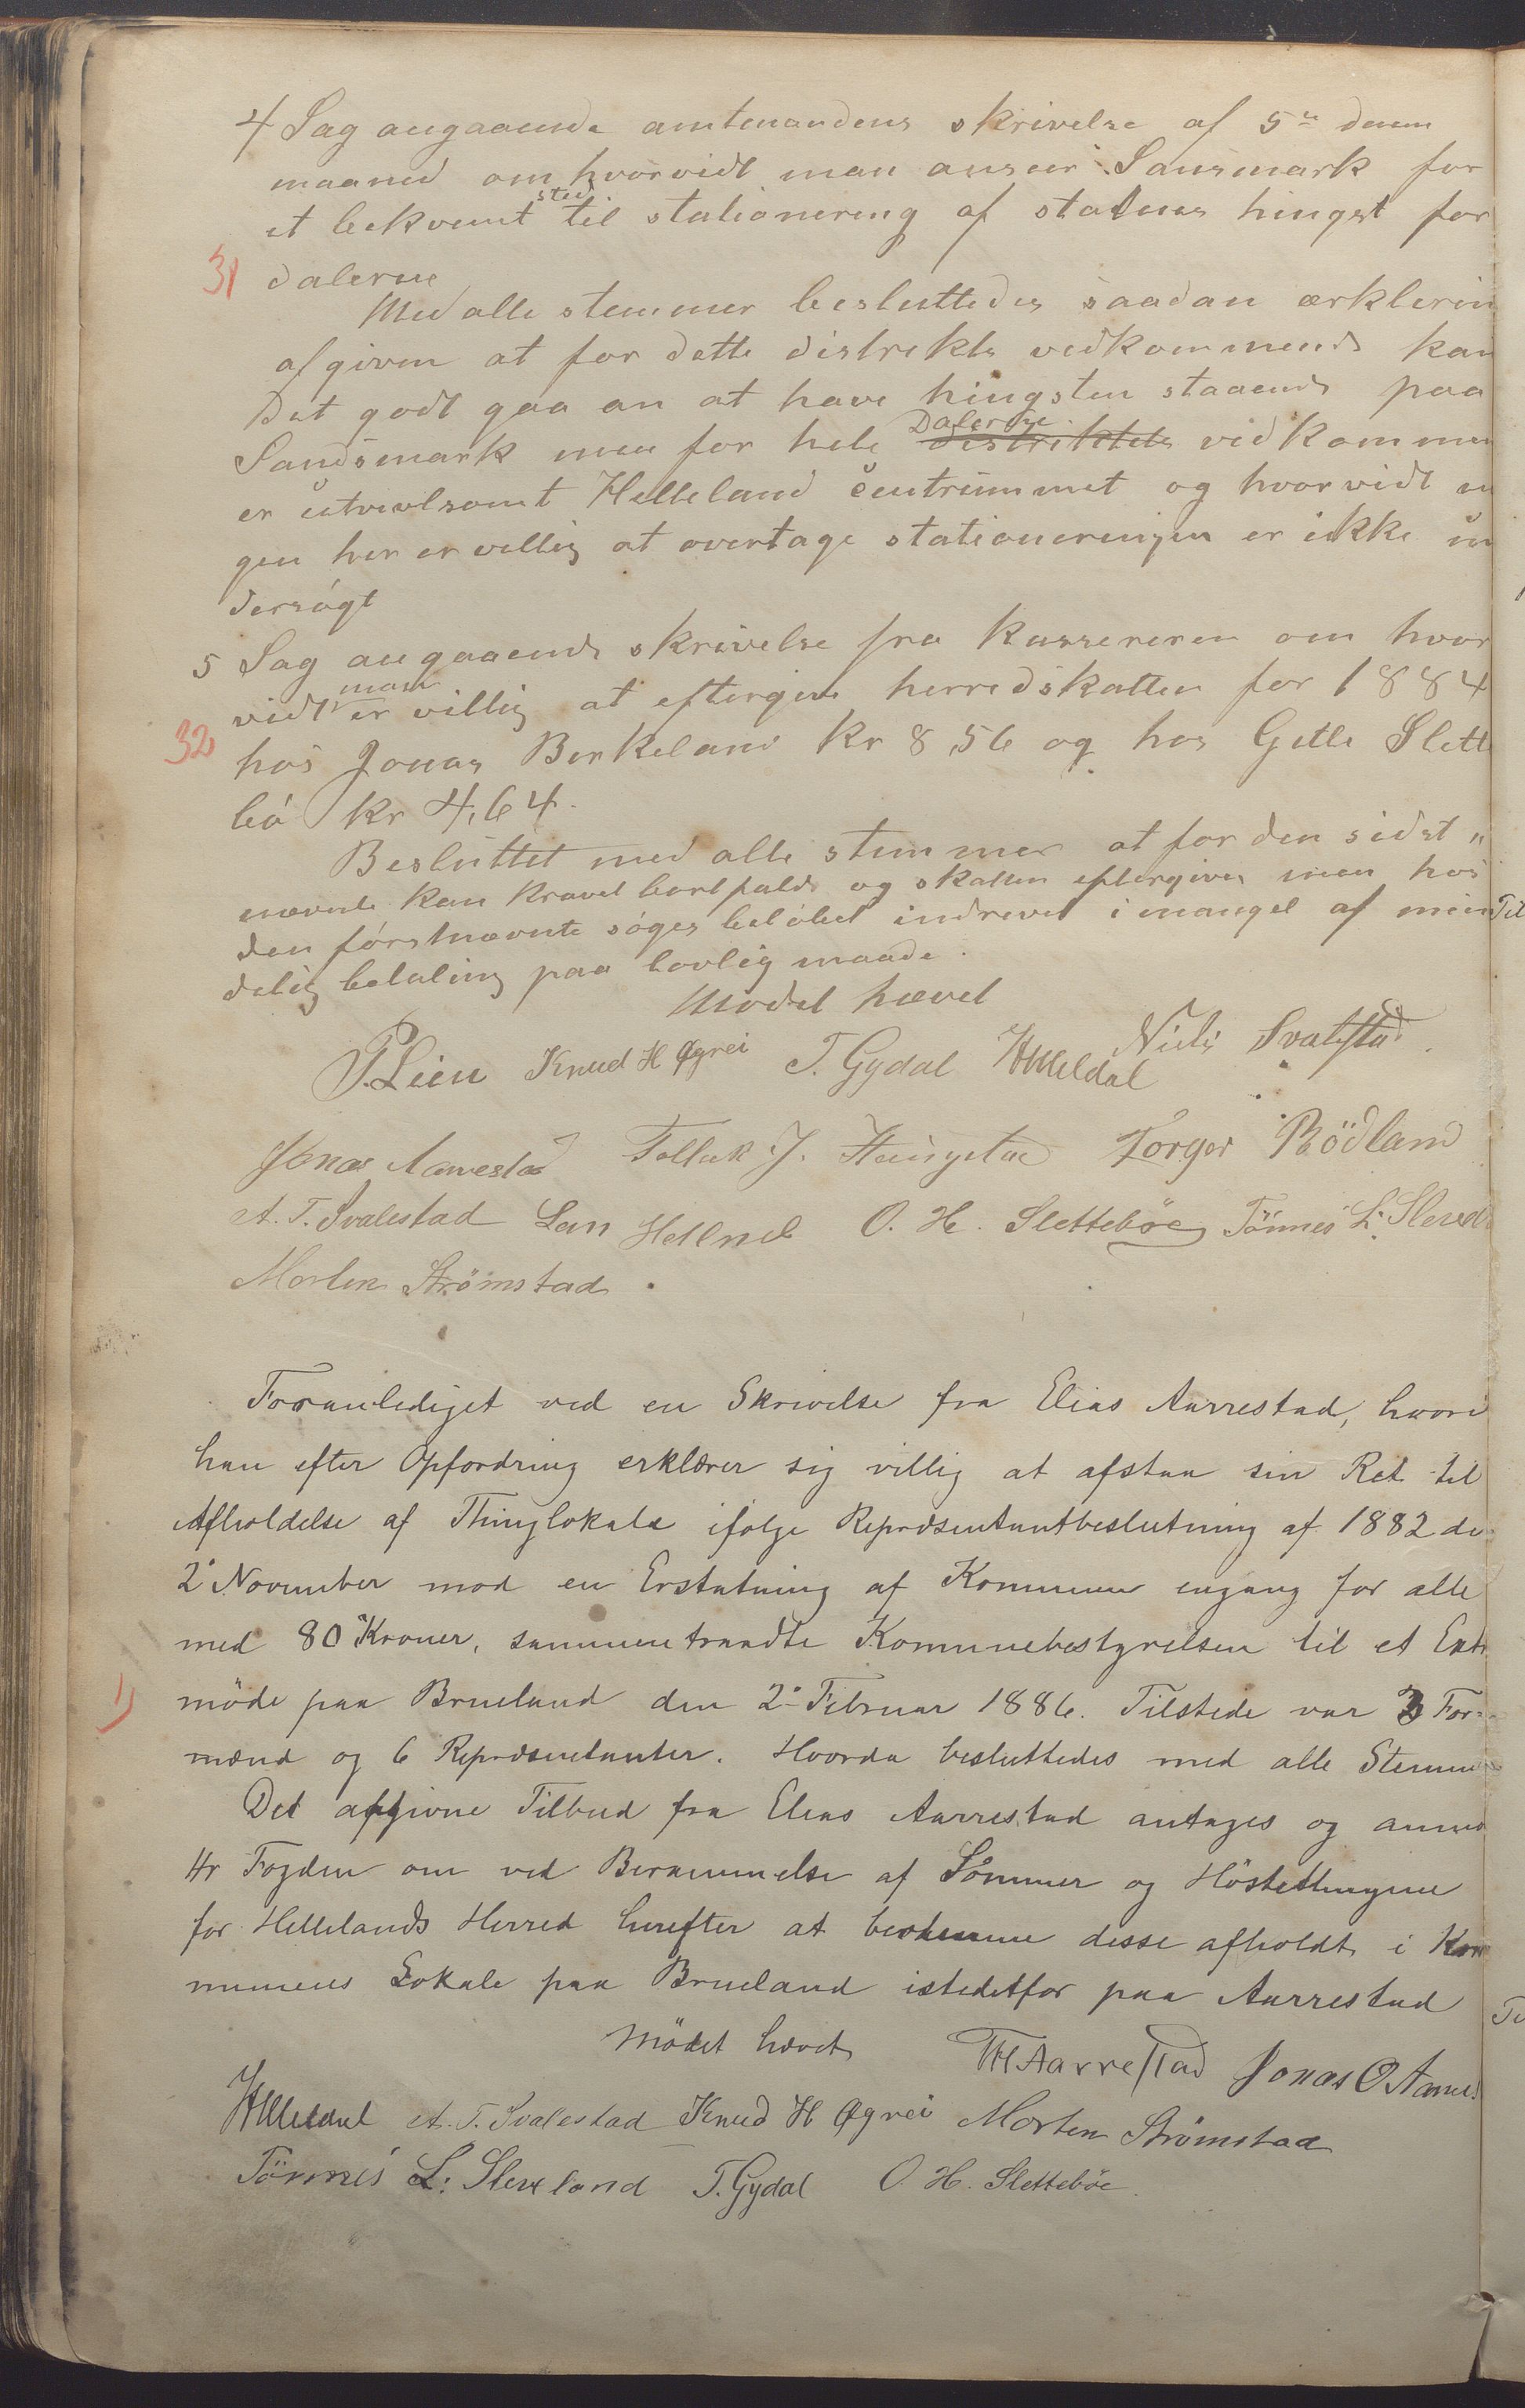 4 Sag angaaende amtmandens skrivelse af 5te denne
maaned om hvorvidt man anseer Sansmark for
et bekvemt sted til stationering af statens hingst for
31 dalerne
Med alle stemmer besluttedes saadan ærklerin
afgiven at for dette distrekts vedkommend kan
Det godt gaa an at have hingsten staaend paa
Sandsmark men for hele distriktets Dalerne vedkommen
er utvevlsomt Helleland centrummet og hvorvidt n
gen her er vellig at overtage stationeringen er ikke un
dersögt
5 Sag angaaende skrivelse fra kassereren om hvor
vidt man er villig at eftergive herredskatten for 1884
32 hos Jonas Berkeland kr 8,56 og hos Getle Slett
bö kr 4,64.
Besluttet med alle stemmer at for den sidst"
nævnte kan kravet bortfalde og skatten eftergives men hos
den förstnævnte söges belöbet indrevet i mangel af min
delig betaling paa lovlig maade.
Mödet hævet
P. Lien Knud H Øgrei T. Gydal HMeldal Niels Svalestad
Jonas Aarrestad Tollak J. Haugstad Torger Rödland
A. T. Svalestad Lars Hetland O. H. Slettebøe Tönnes L. Slevel
Morten Strømstad.
Foranlediget ved en Skrivelse fra Elias Aarrestad, hvori
han efter Opfordring erklærer sig villig at afstaa sin Ret til
Afholdelse af Thinglokale ifølge Repræsentantbeslutning af 1882 de
2' November mod en Erstatning af Kommunen engang for alle
med 80 Kroner, sammentraadte Kommunebestyrelsen til et Extr
1) möde paa Brueland den 2- Februar 1886. Tilstede var 3 For-
mænd og 6 Repræsentanter. Hvorda besluttedes med alle Stemm
Det afgivne Tilbud fra Elias Aarrestad antages og anmo
Hr Fogden om ved Berammelse af Sommer og Höstethingene
for Hellelands Herred herefter at bestemme disse afholdt i Kom
munens Lokale paa Brueland istedetfor paa Aarrestad
Mödet hævet THAarrestad Jonas O Aarres
HMeldal A. T. Svalestad Knud H Øgrei Morten Strømstad
Tönnes L. Sleveland T. Gydal O. H. Slettebøe.